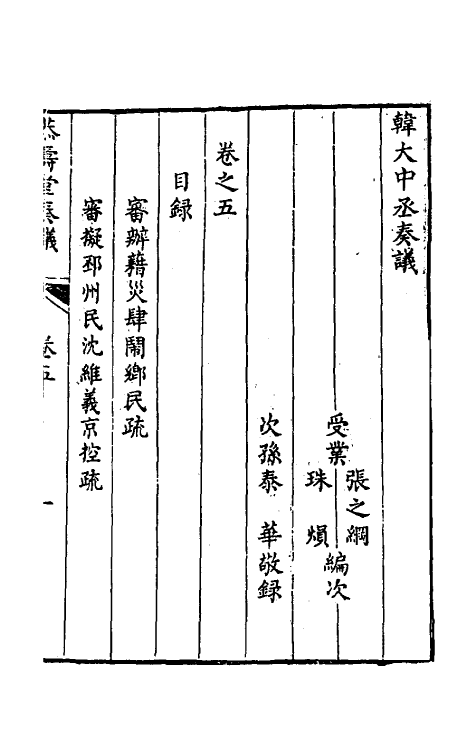 韓大中丞奏議
受業 張之綱 珠熉 編次
次孫泰 華敬録
卷之五
目録
審辦藉災肆鬧鄉民疏
審擬邳州民沈維義京控疏
恭壽堂奏議 卷五 一